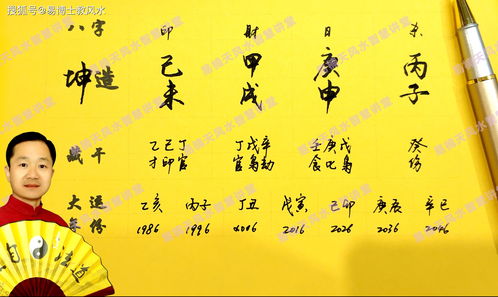 搜狐号@易博士教风水
八字 印 财 日 杀
坤造 己未 甲戌 庚申 丙子
藏干 乙己丁 丁戊辛 壬庚戊 癸
才印官 官枭劫 食比枭 伤
大运 乙亥 丙子 丁丑 戊寅 己卯 庚辰 辛巳
年份 1986 1996 2006 2016 2026 2036 2046
易梅天风水智慧讲堂